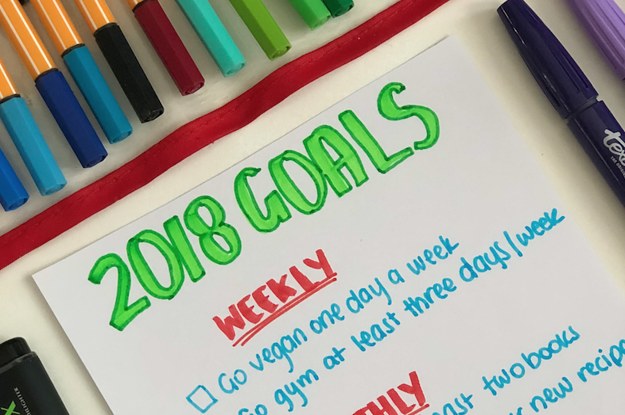 2018 GOALS
WEEKLY
Go vegan one day a week
Go gym at least three days/week
two books
new